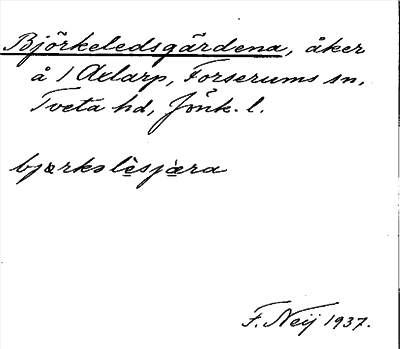 Björkeledsgärdena, åker
å / Axlarp, Forserums sn,
Tveta hd, Jönk. l.
bjærkslèsjæ̀ra
F. Neij 1937.